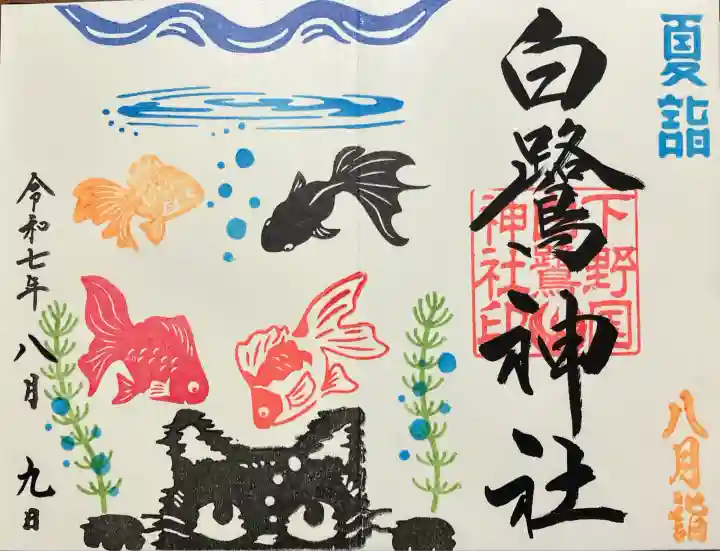 夏詣
白鷺神社
下野国
白鷺
神社印
八月詣
令和七年 八月 九日